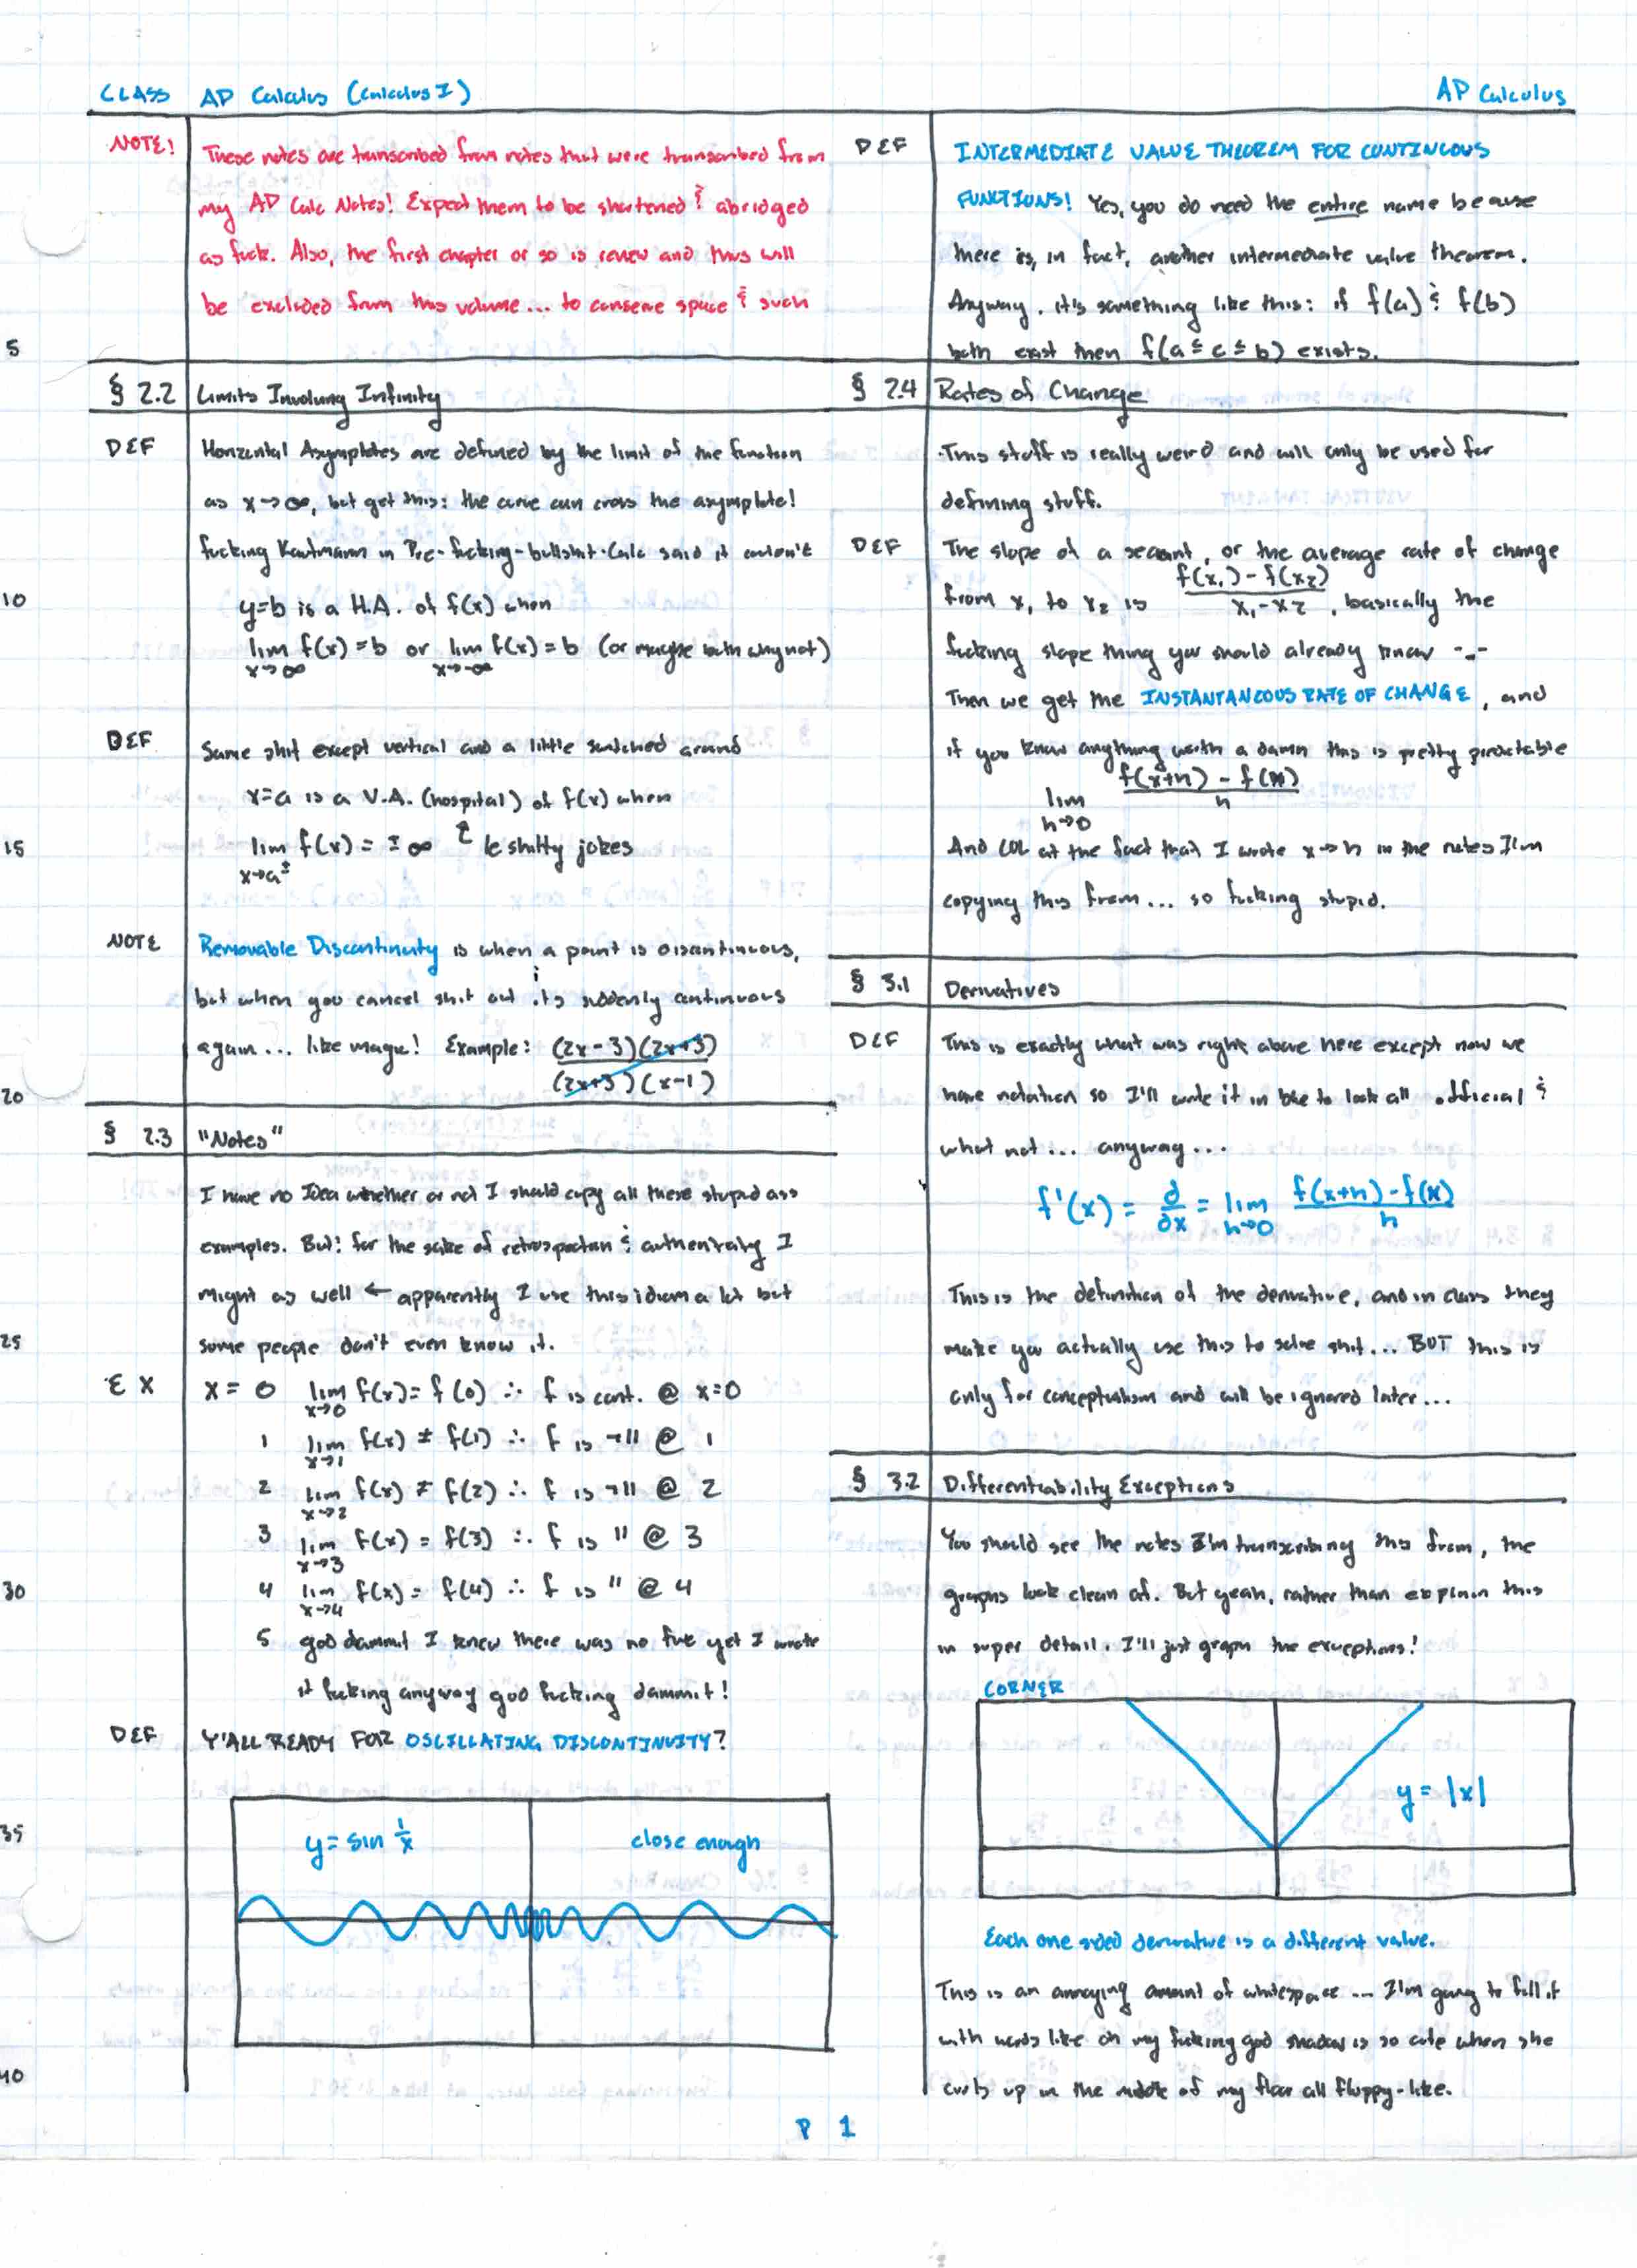 CLASS AP Calculus (Calculus I)
AP Calculus
NOTE! These notes are transcribed from notes that were transcribed from
my AP Calc Notes! Expect them to be shortened & abridged
as fuck. Also, the first chapter or so is review and thus will
be excluded from this volume... to conserve space & such
5
§ 2.2 Limits Involving Infinity
DEF Horizontal Asymptotes are defined by the limit of the function
as x→∞, but get this: the curve can cross the asymptote!
fucking Kaufmann in Pre-fucking-bullshit-Calc said it couldn't
10 y=b is a H.A. of f(x) when
lim f(x) = b or lim f(x) = b (or maybe both why not)
x→∞ x→-∞
DEF Same shit except vertical and a little switched around
x=a is a V.A. (hospital) of f(x) when
15 lim f(x) = ±∞ ↑ le shitty jokes
x→a±
NOTE Removable Discontinuity is when a point is discontinuous,
but when you cancel shit out its suddenly continuous
again... like magic! Example: (2x-3)(2x+3)
20 (2x+3)(x-1)
§ 2.3 "Notes"
I have no Idea whether or not I should copy all these stupid ass
examples. But! for the sake of retrospection & authenticity I
might as well ← apparently I use this idiom a lot but
25 some people don't even know it.
EX x = 0 lim f(x) = f(0) ∴ f is cont. @ x=0
x→0
1 lim f(x) ≠ f(1) ∴ f is ¬" @ 1
x→1
2 lim f(x) ≠ f(2) ∴ f is ¬" @ 2
x→2
3 lim f(x) = f(3) ∴ f is " @ 3
x→3
30 4 lim f(x) = f(4) ∴ f is " @ 4
x→4
5 god dammit I knew there was no five yet I wrote
it fucking anyway god fucking dammit!
DEF Y'ALL READY FOR OSCILLATING DISCONTINUITY?
35 y = sin 1/x close enough
40
DEF INTERMEDIATE VALUE THEOREM FOR CONTINUOUS
FUNCTIONS! Yes, you do need the entire name because
there is, in fact, another intermediate value theorem.
Anyway, it's something like this: if f(a) & f(b)
both exist then f(a ≤ c ≤ b) exists.
§ 2.4 Rates of Change
This stuff is really weird and will only be used for
defining stuff.
DEF The slope of a secant, or the average rate of change
from x₁ to x₂ is f(x₁)-f(x₂) / x₁-x₂, basically the
fucking slope thing you should already know -.-
Then we get the INSTANTANEOUS RATE OF CHANGE, and
if you know anything worth a damn this is pretty predictable
lim f(x+h) - f(x) / h
h→0
And LOL at the fact that I wrote x→h in the notes I'm
copying this from... so fucking stupid.
§ 3.1 Derivatives
DEF This is exactly what was right above here except now we
have notation so I'll write it in blue to look all official &
what not... anyway...
f'(x) = d/dx = lim f(x+h)-f(x) / h
h→0
This is the definition of the derivative, and in class they
make you actually use this to solve shit... BUT this is
only for conceptualism and will be ignored later...
§ 3.2 Differentiability Exceptions
You should see the notes I'm transcribing this from, the
graphs look clean af. But yeah, rather than explain this
in super detail, I'll just graph the exceptions!
CORNER
y = |x|
Each one sided derivative is a different value.
This is an annoying amount of whitespace... I'm going to fill it
with words like oh my fucking god shadow is so cute when she
curls up in the middle of my floor all fluppy-like.
P 1